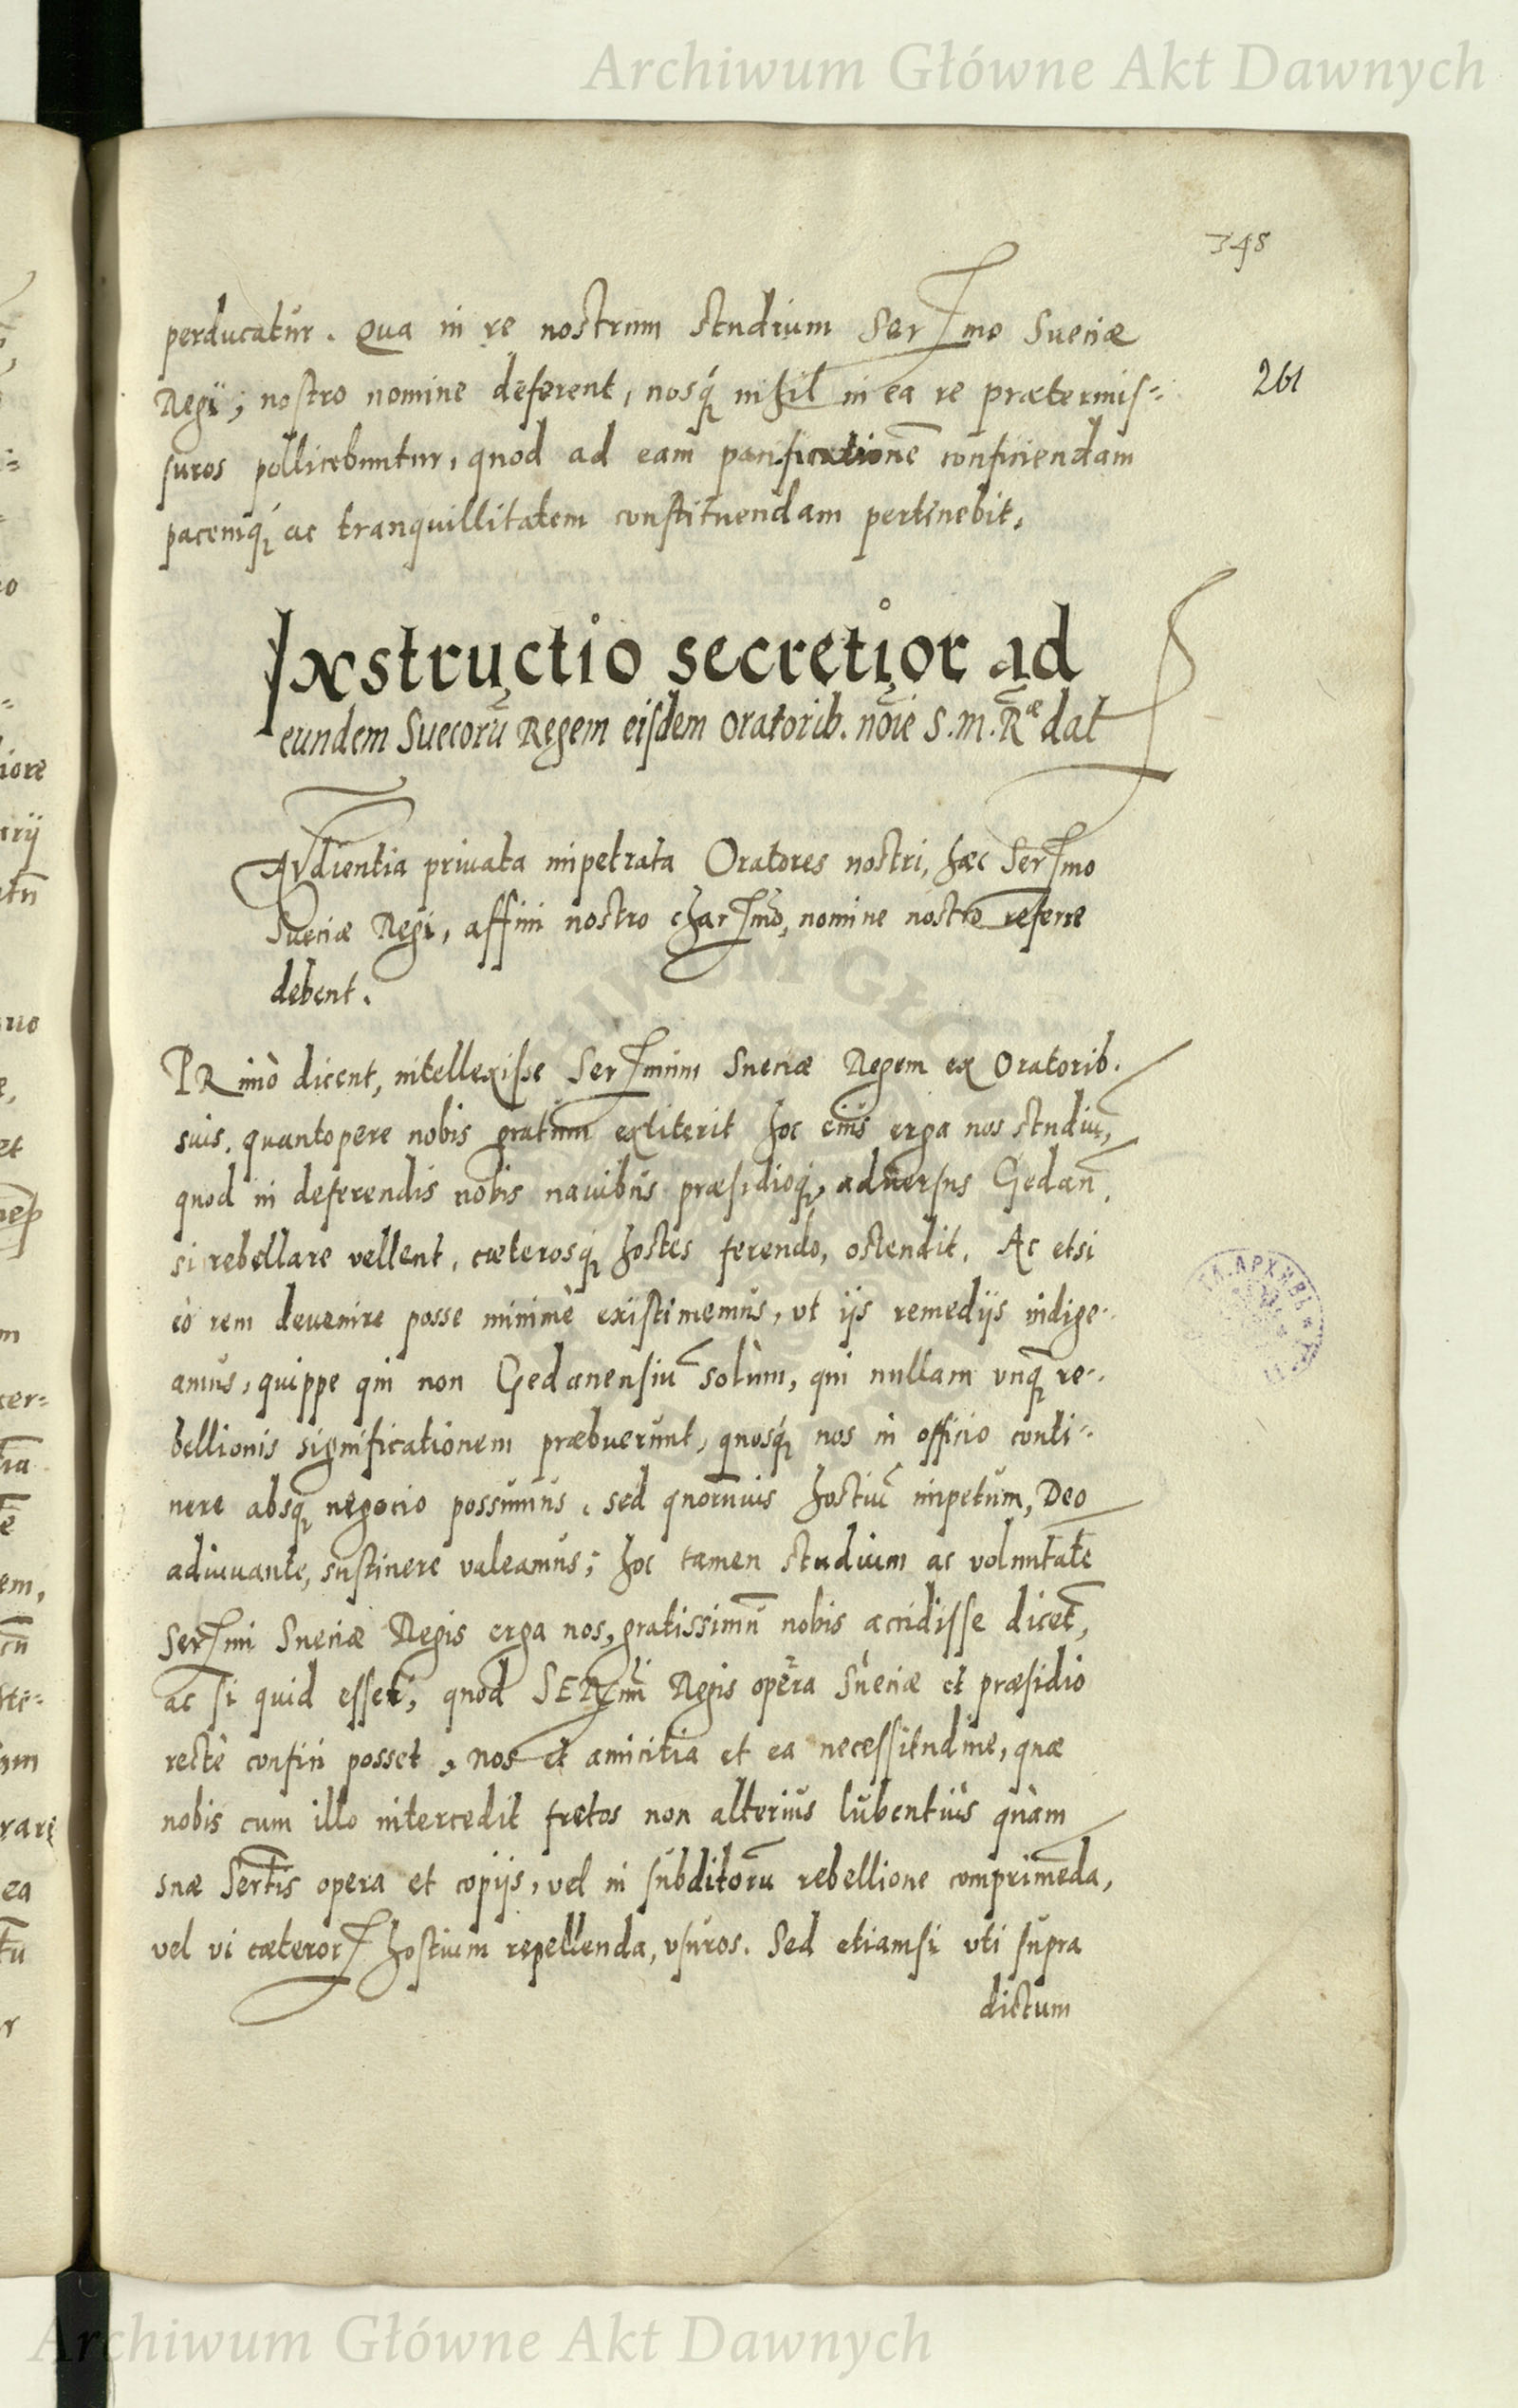 Archiwum Główne Akt Dawnych
348
perducatur. Qua in re nostrum studium Serssmo Sueciæ
261
Regi; nostro nomine deferent, nosq́ nihil in ea re prætermis=
suros pollicebuntur, quod ad eam pacificationē conficiendam
pacemq́ ac tranquillitatem constituendam pertinebit.
Instructio secretior ad
eundem Suecorū Regem eisdem oratorib. noīe S. M. Rᵃᵉ dat
AVdientia priuata impetrata Oratores nostri, hæc Serssmo
Sueciæ Regi, affini nostro charssmo, nomine nostro referre
debent.
PRimò dicent, intellexisse Serssmum Sueciæ Regem ex Oratorib.
suis. quantopere nobis gratum extiterit hoc eius erga nos studiū,
quod in deferendis nobis nauibus præsidioq́, aduersus Gedan̄.
si rebellare vellent, cæterosq́ hostes ferendo, ostendit. Ac etsi
eò rem deuenire posse minimè existimemus, vt ijs remedijs indige=
amus, quippe qui non Gedanensiū solùm, qui nullam vnq̃ re=
bellionis significationem præbuerunt, quosq́ nos in officio conti=
nere absq́ negocio possumus, sed quorumuis hostiū impetum, Deo
adiuuante, sustinere valeamus; hoc tamen studium ac voluntatē
Serssmi Sueciæ Regis erga nos, gratissimū nobis accidisse dicēt,
ac si quid esset, quod SERssmi Regis opera Sueciæ et præsidio
rectè confici posset, nos et amicitia et ea necessitudine, quæ
nobis cum illo intercedit fretos non alterius lubentiùs quàm
suæ Sertis opera et copijs, vel in subditorū rebellione comprimēda,
vel vi cæteror hostium repellenda, vsuros. Sed etiamsi vti supra
dictum
Archiwum Główne Akt Dawnych